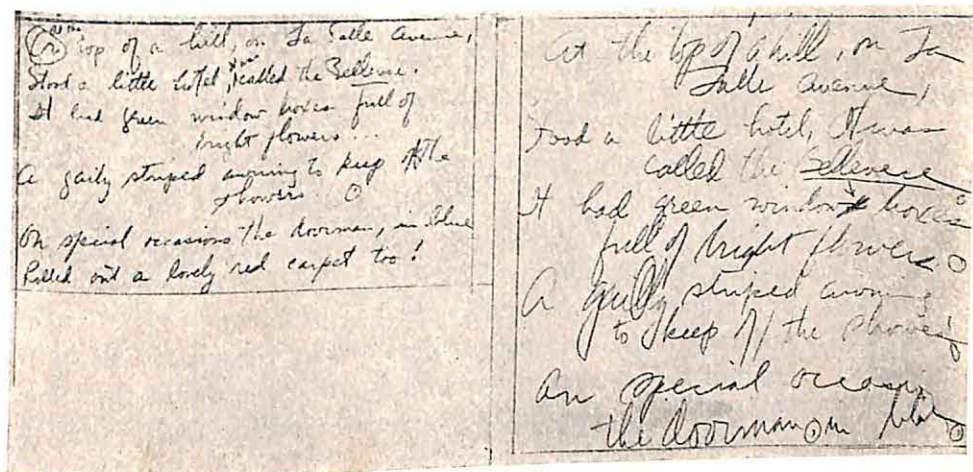 On the top of a hill, on La Salle Avenue,
Stood a little hotel, called the Bellevue.
It had green window boxes full of
bright flowers...
A gaily striped awning to keep off the
showers.
On special occasions the doorman, in blue
Rolled out a lovely red carpet too!
At the top of a hill, on La
Salle Avenue,
Stood a little hotel, It was
called the Bellevue
It had green window boxes
full of bright flowers
A gaily striped awning
to keep off the showers,
On special occasions
the doorman, in blue,